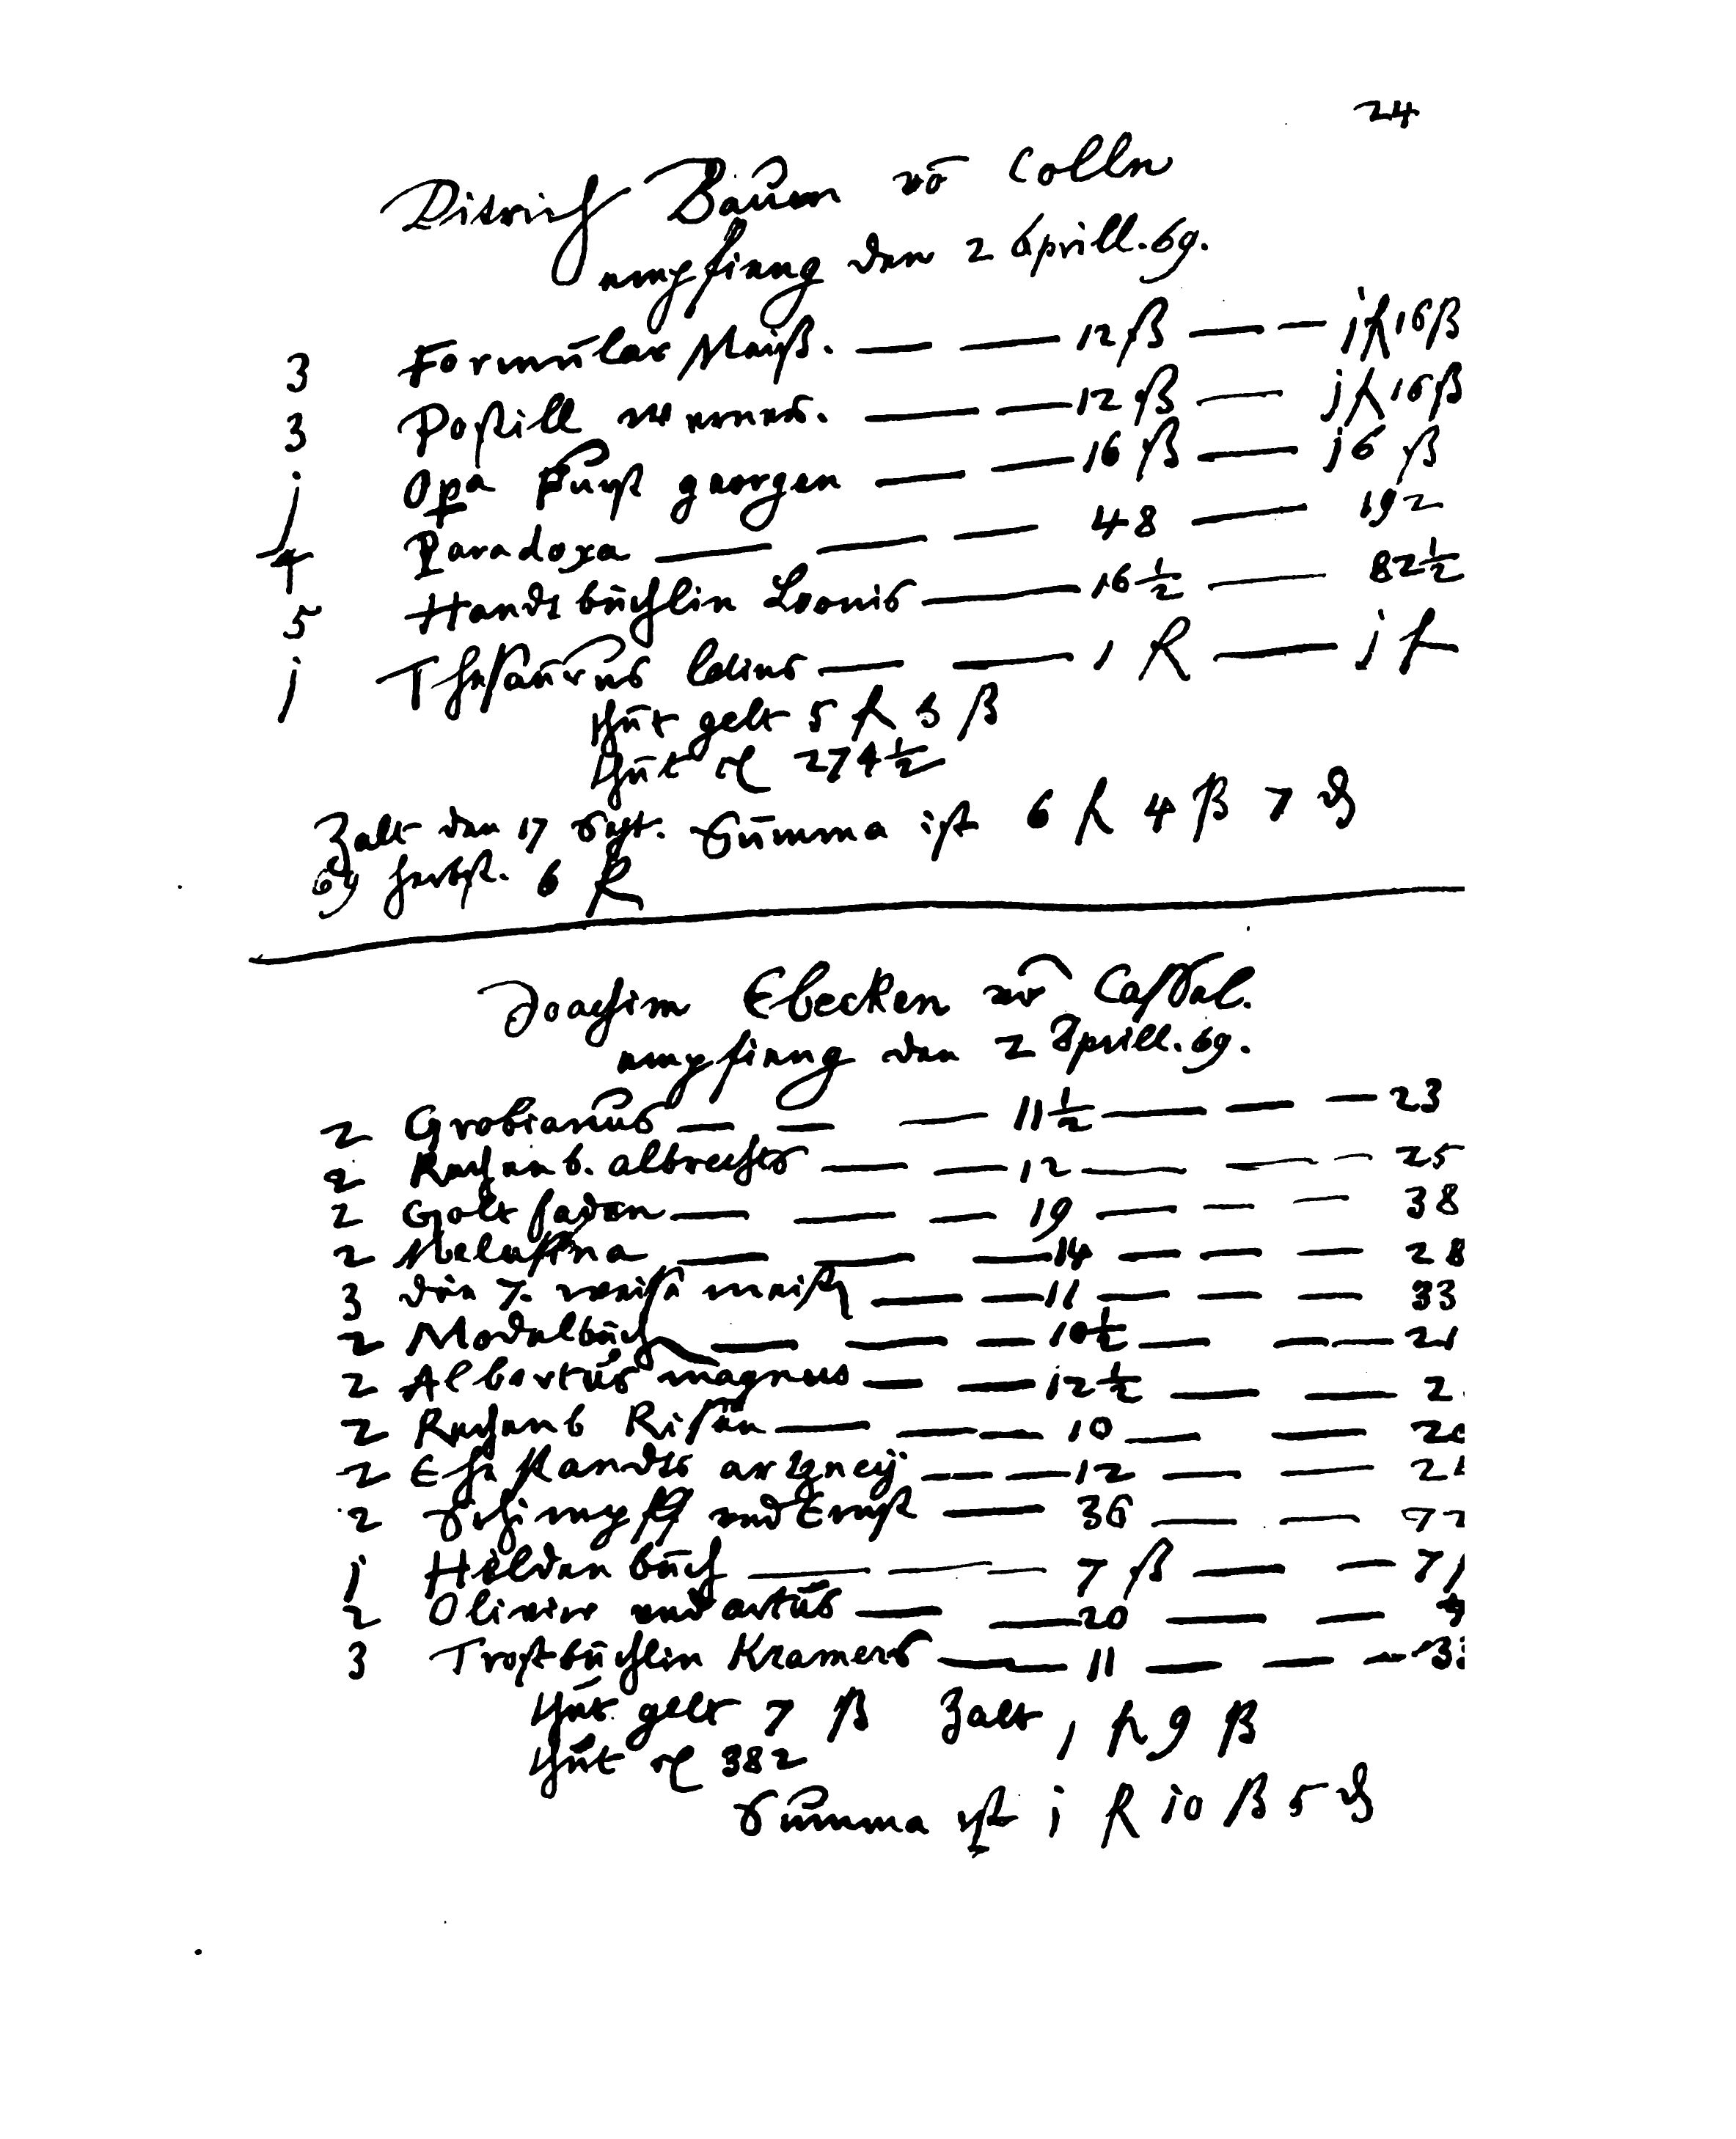 24
Ditrich Baum vō Colln
empfieng den 2 Aprill. 69.
3 Formular Meiß. — — 12 ß — — j fl 16 ß
3 Postill — — 12 ß — j fl 16 ß
j Opa Furst georgen — — 16 ß — j6 ß
4 Paradoxa — — — 48 — 192
5 Handtbüchlin Leonis — 16 ½ — 82 ½
j Thesaurus — — 1 fl — j fl
thut gelt 5 fl 3 ß
thut 274 ½
Zalt den 17 Sept. Summa ist 6 fl 4 ß 7 ₰
69 herbst. 6 fl
Joachim Ebecken vō Cassel.
empfieng den 2 Aprill. 69.
2 Grobianus — — — 11 ½ — — — 23
2 Rechenb. albrechts — — 12 — — — 25
2 Golt faden — — — 19 — — — 38
2 Melusina — — — 14 — — — 28
3 die 7. weise meist — — 11 — — — 33
2 Modelbuch — — — 10 ½ — — — 21
2 Albertus magnus — — 12 ½ — — 2
2 Rechenb Risen — — — 10 — — 20
2 Ehestandts artzneÿ — — 12 — — 24
2 Schimpff und Ernst — 36 — — 72
j Helden buch — — — 7 ß — — 7
2 Olivier und artus — — 20 — — 4
3 Trostbüchlin Kramers — — 11 — — — 3
thut gelt 7 ß Zalt 1 fl 9 ß
thut 382
Summa ist j fl j0 ß 5 ₰